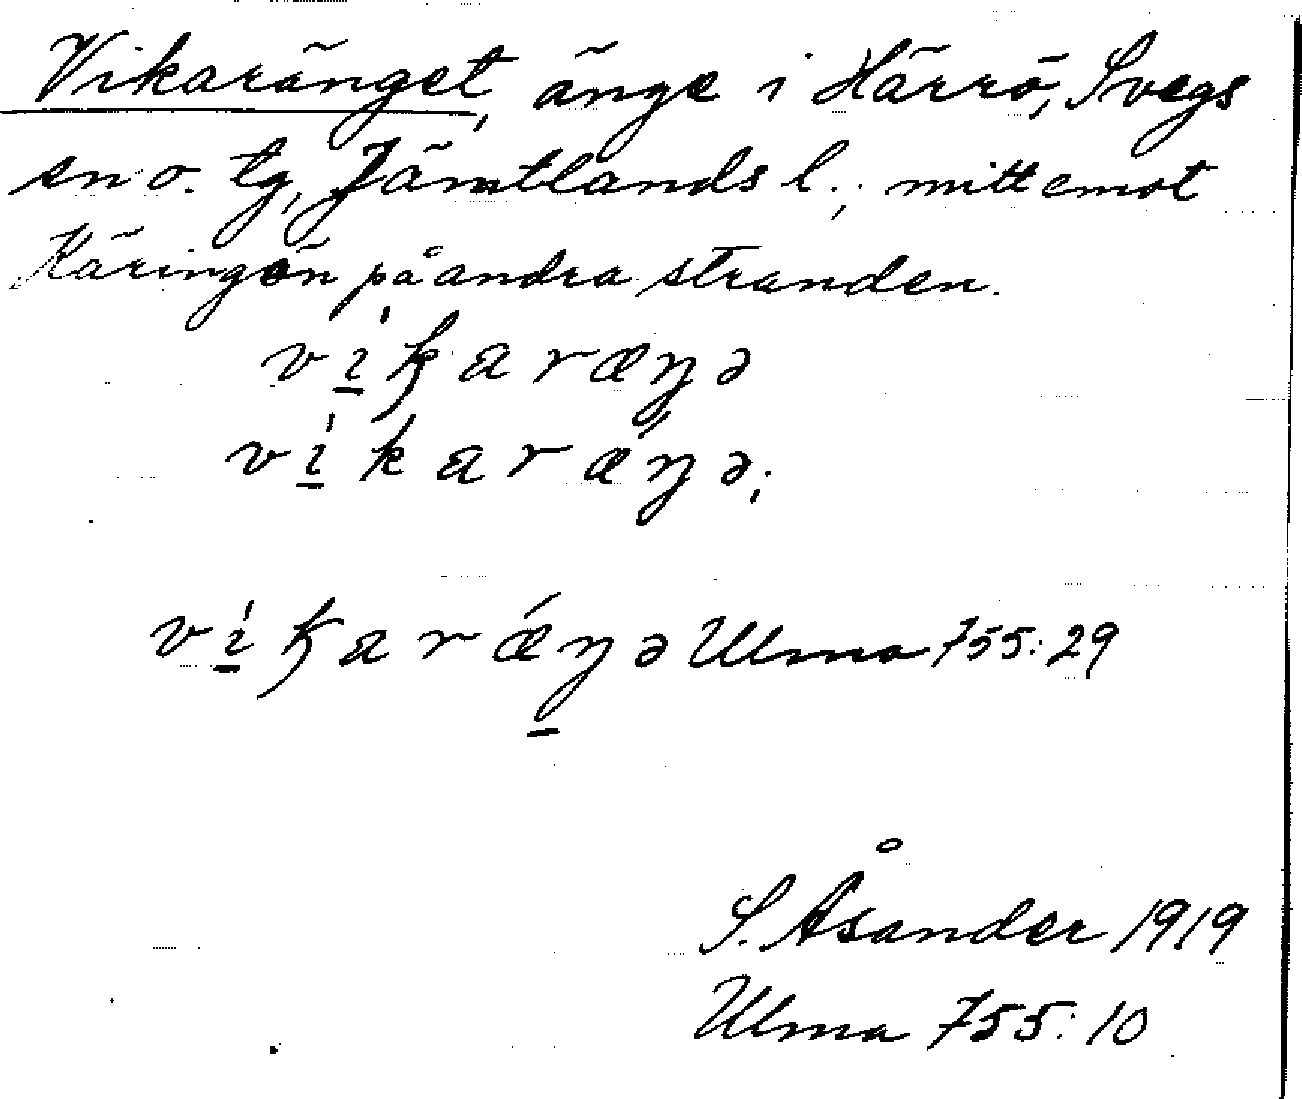 Vikaränget, änge i Härrö, Svegs
sn o. tg, Jämtlands l.; mitt emot
Käringön på andra stranden.
vı̱́ƙaraŋə
vı̱́karæŋ́ə;
vı̱́ƙarǽŋə Ulma 755:29
S. Åsander 1919
Ulma 755:10